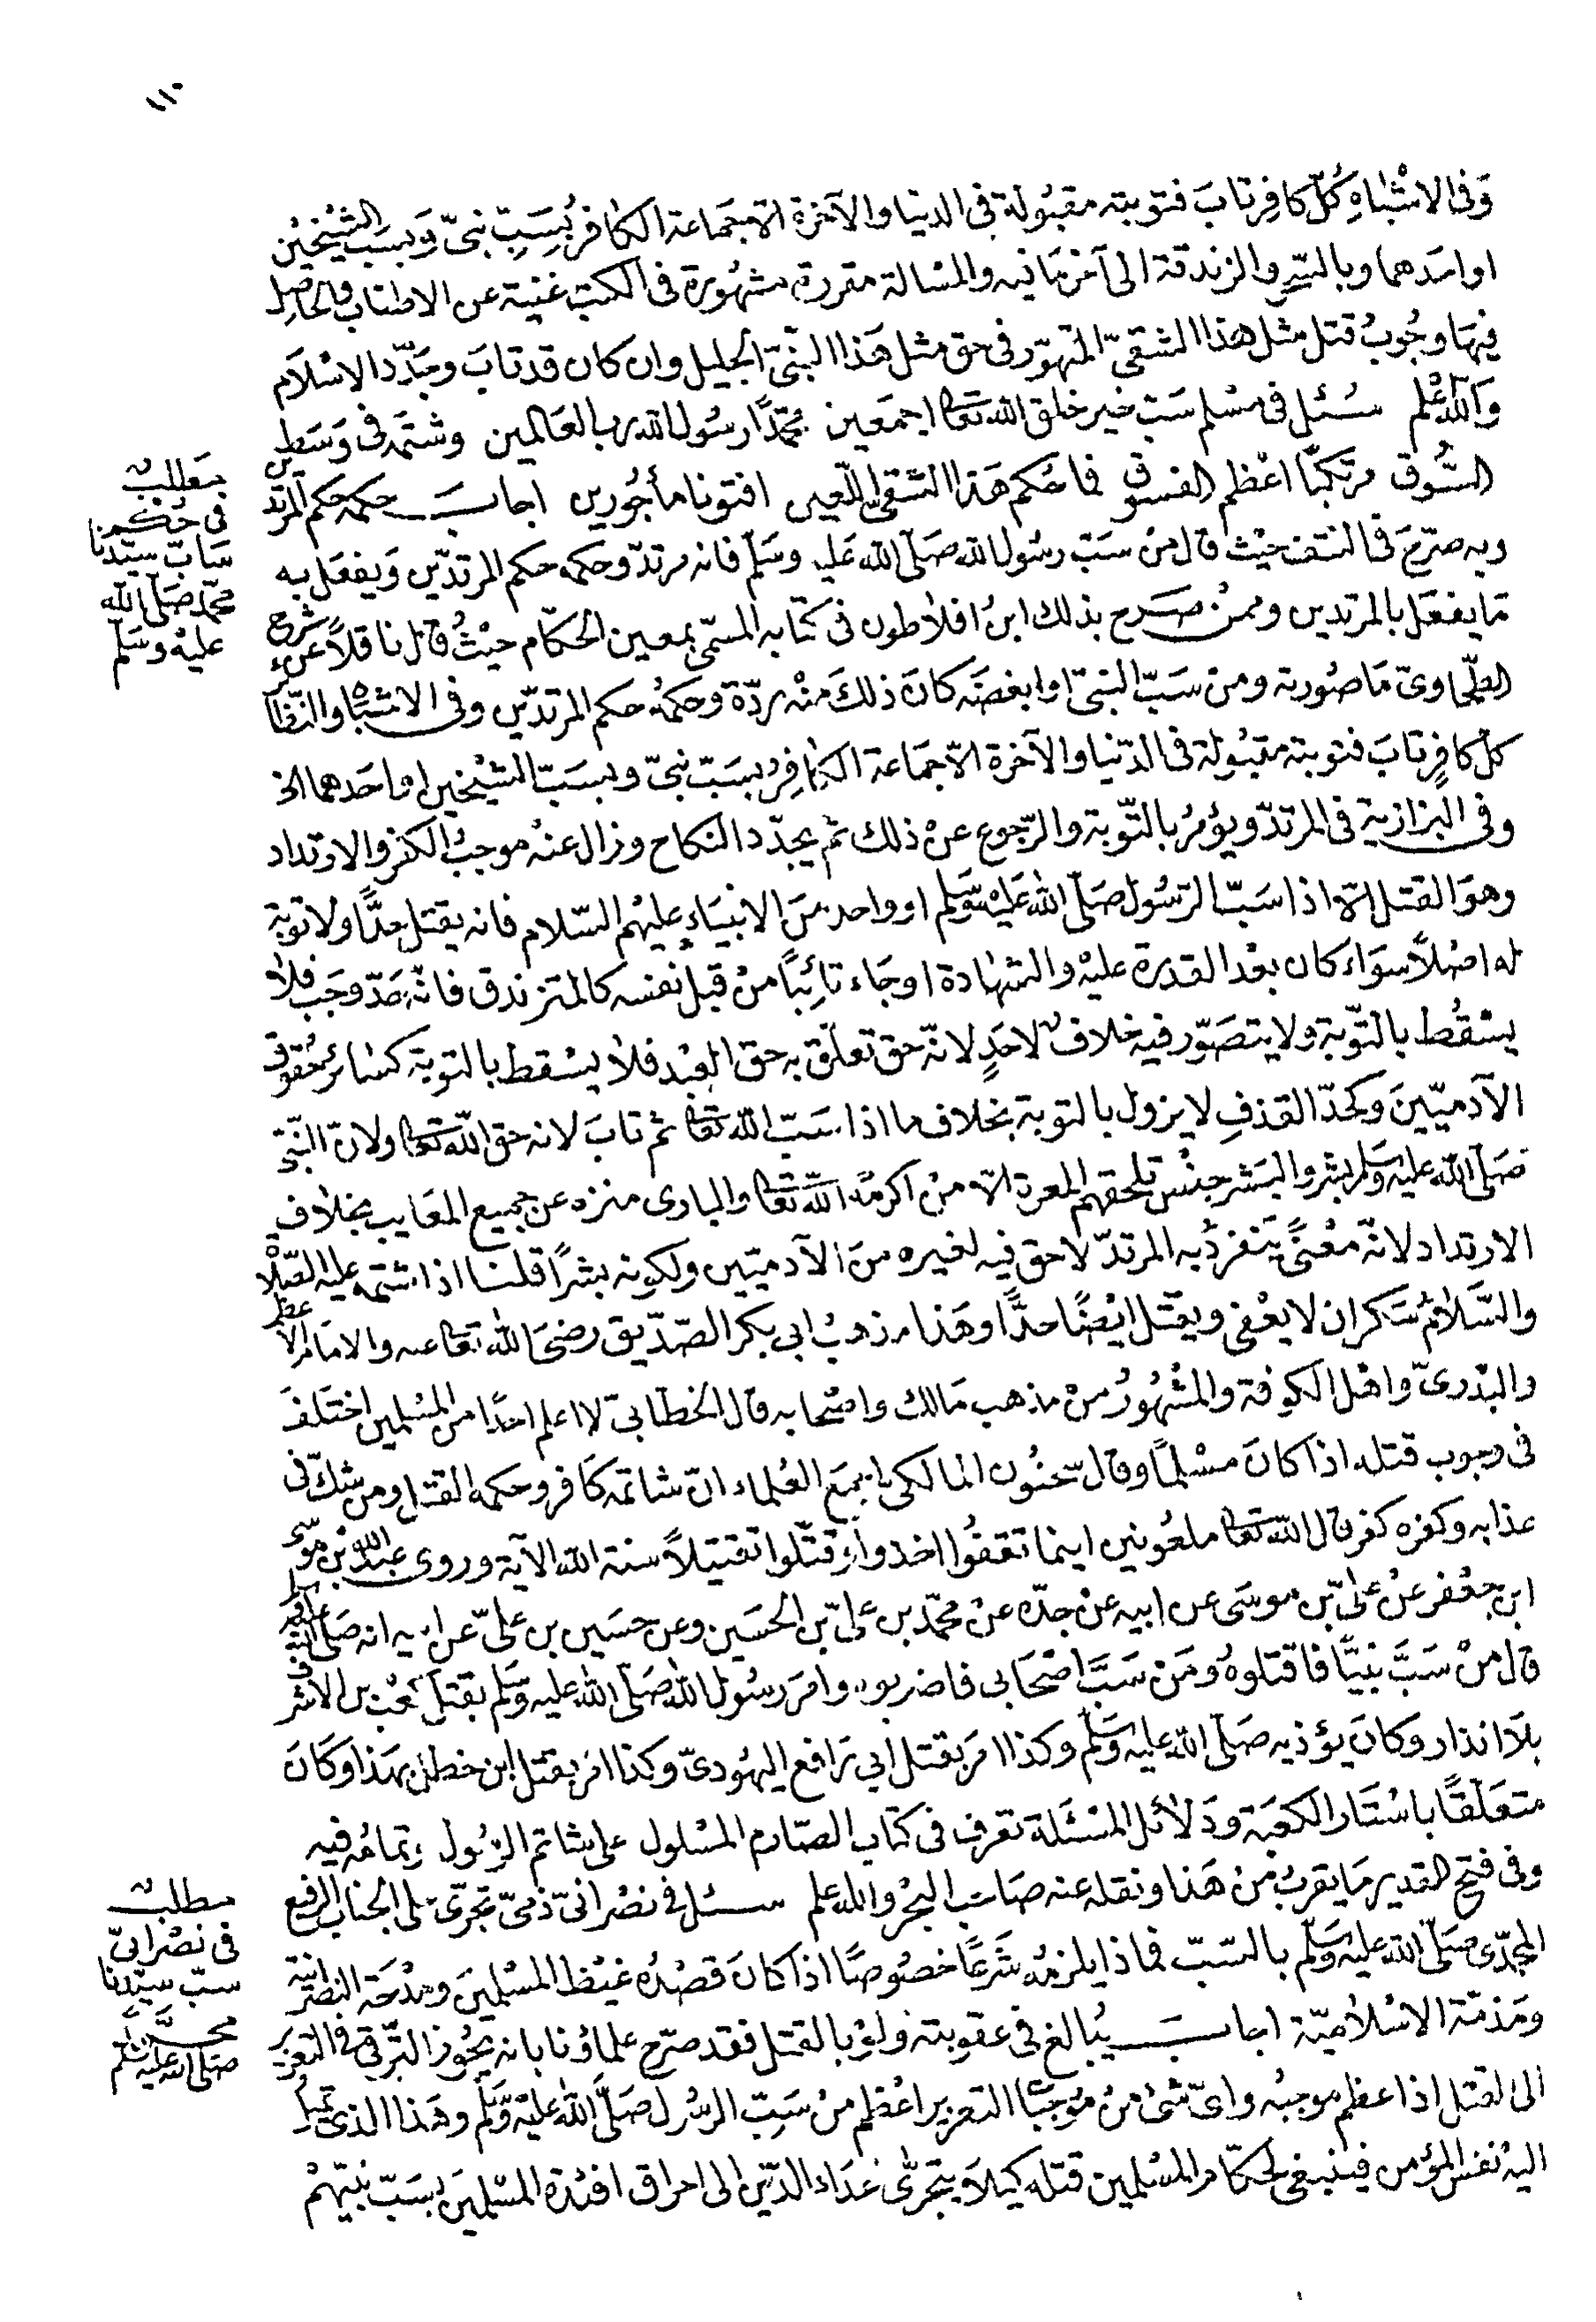 ١١٠
وَفى الاشْبَاهِ كُلّ كافِر تابَ فتوبته مقبُولة فى الدنيا والآخرة الا جَماعة الكافر بُسَبِّ نبىّ وَبسَبّ الشيْخيْن
او احدهما وبالسِّحر والزندقة الى آخر مَا فيه والمسالة مقررة مشهُورة فى الكتب غنية عن الاطناب والحاصِل
فيهَا وجُوبُ قتل مثل هذا الشقىّ المتهوّر فى حق مثل هَذا النّبىّ الجليل وان كان قد تابَ وجَدّد الاسْلاَم
وَاللهُ اعْلم سُئل فى مسْلم سَبّ خير خلق الله تعالى اجمَعين محمّدًا رسُول الله رب العَالمين وشتمَه فى وَسَطِ
السُّوق مرتكبًا اعْظم الفسوق فما حُكم هَذا الشقى اللّعين افتونا مأجُورين اجابَ حكمه حكم المرتدين
وبه صرّحَ فى النتف حيْث قال منْ سَبّ رسُول الله صَلّى الله عَليه وسَلّم فانه مرتدّ وحكمه حكم المرتدّين وَيفعَل به
مَا يفعَل بالمرتدين وممنْ صَرح بذلك ابنُ افلاطون فى كتابه المسمّى بمعين الحكّام حيْثُ قال ناقلاً عنْ شرح
الطّحاوىّ مَا صُورته ومن سَبّ النبىّ او ابغضَه كانَ ذلكَ منْه ردّة وحكمُه حكم المرتدّين وفى الاشْبَاه والنّظائر
كلّ كافِرٍ تابَ فتوبته مقبُولة فى الدّنيا والآخرة الاّ جَماعة الكافِرُ بسَبّ نبىّ وبسَبّ الشيْخين او احَدهما الخ
وفى البزازية فى المرتدّ ويؤمرُ بالتّوبة والرّجوع عنْ ذلك ثم يجدّد النكاح وزال عنْه موجبُ الكفر والارتداد
وهوَ القتل الاّ اذا سَبّ الرّسُول صَلّى الله عَليْه وسَلّم او واحد منَ الانبيَاءِ عليْهم السّلام فانه يقتل حدًّا ولا توبة
له اصْلاً سوَاء كان بعْد القدرة عليْه والشهادة او جَاء تائبًا منْ قبل نفسه كالمتزندق فانّه حَدّ وجَب فلا
يسْقُط بالتّوبة ولا يتصَوّر فيه خلافٌ لاحَدٍ لانّه حق تعلّق به حق العبْد فلا يسْقط بالتوبة كسَائر حُقوق
الآدميّينَ وكحدّ القذفِ لا يزول بالتوبة بخلاف ما اذا سَبّ الله تعالى ثم تابَ لانه حق الله تعالى ولانّ النّبىّ
صَلّى الله عليه وسَلم بشر والبَشر جنْس تلحقهم المعرة الاّ منْ اكرمَه الله تعالى والبارى منزه عن جميع المعَايب بخلاف
الارتداد لانّه معْنًى يَتفرّدُ به المرتدّ لا حق فيه لغيره منَ الآدميّين ولكونه بشرًا قلنا اذا شتمه عليه الصّلاة
والسَّلامُ سَكران لا يعْفى ويقتل ايْضًا حدًّا وهَذا مذهبُ ابى بكر الصّدّيق رضىَ الله تعالى عنه والامَام الاعظم
والبدْرىّ واهْل الكوفة والمشْهُورُ منْ مذهب مَالك واصْحابه قال الخطابىّ لا اعلم احدًا من المسْلمين اختَلفَ
فى وجوب قتله اذا كانَ مسْلمًا وقال سحنُون المالكى اجمَع العُلماء انّ شاتمَه كَافر وحكمه القتل ومن شكّ فى
عذابه وكفره كفر قال الله تعالى ملعُونين اينما ثقفُوا اخذوا وَقتّلوا تقتيلاً سنة الله الآية وروى عبْد الله بنْ موسى
ابن جعْفر عنْ علىّ بن موسَى عن ابيه عنْ جدّه عنْ محمّد بن علىّ بن الحسَين وعن حسَين بن علىّ عن ابيه انه صَلى الله عليه وسلم
قال منْ سَبَّ نبيًّا فاقتلوهُ ومَن سَبَّ اصْحَابى فاضربوه وامرَ رسُول الله صَلّى الله عليه وسَّلم بقتل كعْب بن الاشرف
بلاَ انذار وكانَ يؤذيه صَلّى الله عليه وَسَلّم وكذا امَر بقتل ابى رَافع اليهُودىّ وكذا امَر بقتل ابن خطل بهَذا وكَانَ
متعَلقًا باسْتَار الكعبَة ودَلاَئل المسْئَلة تعرف فى كتاب الصّارم المسْلول على شاتم الرسُول وتمامُه فيه
وفى فتح القدير مَا يقربُ منْ هَذا ونقله عنه صَاحب البحْر والله اعلم سُئل فى نصْرانىّ ذمىّ تجرّى على الجناب الرفيع
المحمّدى صَلّى الله عليْه وسَلّم بالسّبّ فماذا يلزمُه شَرعًا خصُوصًا اذا كانَ قصْدُه غيْظ المسْلمِينَ ومِدْحَة النصْرانية
ومَذمّة الاسْلاميّة اجابَ يُبالغ فى عقوبته ولوْ بالقتل فقد صرّح علماؤنا بانه يجُوز التّرقى فى التعْزير
الى القتل اذا عظم موجبُه واىّ شئ منْ مُوجبَات التعزير اعْظم منْ سَبّ الرسُول صَلَّى الله عليْه وَسَّلم وهَذا الذى تميل
اليْه نفسُ المؤمن فينبغى لحكّام المسْلمين قتله كيلاَ يتجرّى اعدَاء الدّين الى احراق افئدة المسْلمِينَ بسَبّ نبيّهمْ
مطلب
فى حُكم
سَابّ سيّدنا
محمّد صَلّى الله
عليْه وسَلّم
مطلب
فى نصْرانىّ
سبّ سيّدنا
محمّد
صَلى الله عليْه وسلم